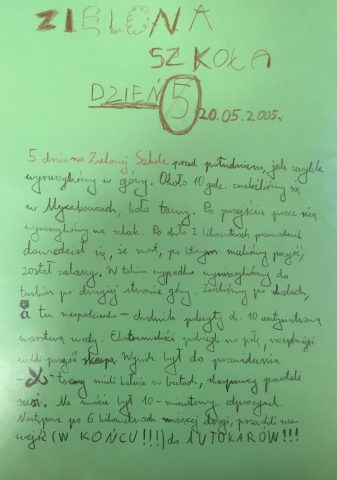 ZIELONA
SZKOŁA
DZIEŃ 5 20.05.2005r.
5 dnia na Zielonej Szkole przed południem, jak zwykle
wyruszyliśmy w góry. Około 10 godz. znaleźliśmy się
w Myczkowcach, koło tamy. Po przejściu przez nią
wyruszyliśmy na szlak. Po około 2 kilometrach przewodnik
dowiedział się, że most, po którym mieliśmy przejść,
został zalany. W takim wypadku wyruszyliśmy do
turbin po drugiej stronie góry. Zeszliśmy po schodach,
a tu niespodzianka - chodnik pokryty ok. 10 centymetrową
warstwą wody. Ekstremaliści poszli na pałę, rozsądniejsi
woleli przejść skarpą. Wynik był do przewidzenia
- tamci mieli kałuże w butach, skarpowcy pozostali
susi. Na moście był 10-minutowy odpoczynek.
Następnie po 6 kilometrach naszej drogi, pozwolili nam
wejść (W KOŃCU!!!) do AUTOKARÓW!!!